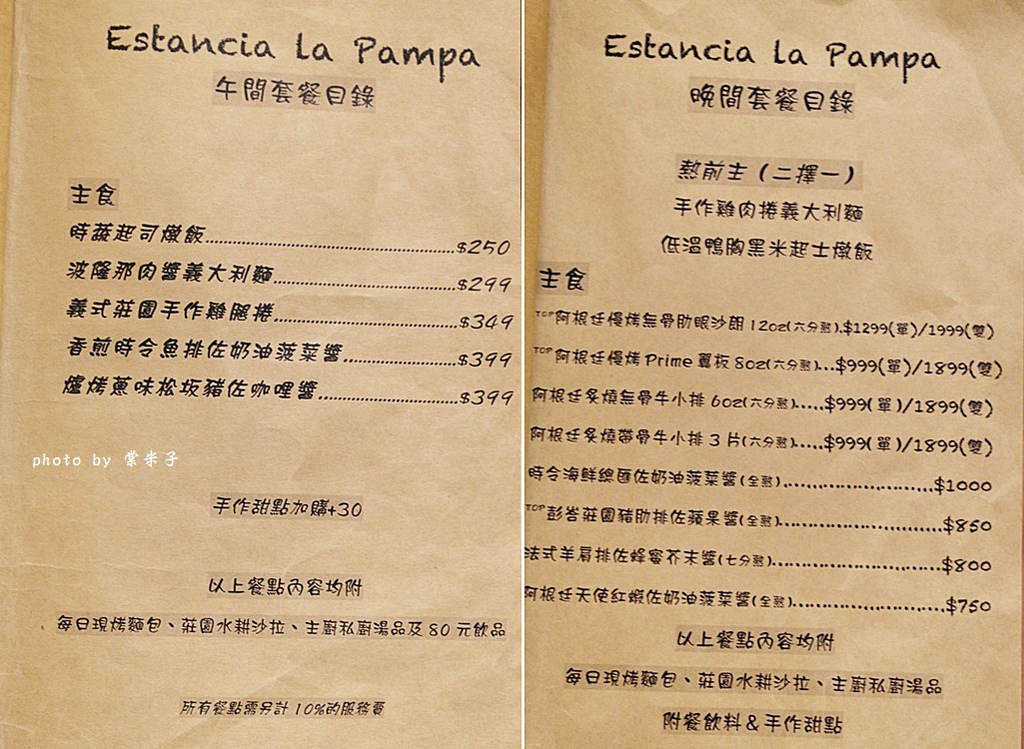 Estancia la Pampa
午間套餐目錄
主食
時蔬起司燉飯.......................................$250
波隆那肉醬義大利麵............................$299
義式莊園手作雞腿捲............................$349
香煎時令魚排佐奶油菠菜醬.................$399
爐烤蔥味松坂豬佐咖哩醬.....................$399
photo by 棠米子
手作甜點加購+30
以上餐點內容均附
每日現烤麵包、莊園水耕沙拉、主廚私廚湯品及 80 元飲品
所有餐點需另計 10%的服務費
Estancia la Pampa
晚間套餐目錄
熱前主（二擇一）
手作雞肉捲義大利麵
低溫鴨胸黑米起士燉飯
主食
TOP阿根廷慢烤無骨肋眼沙朗 12oz(六分熟).$1299(單)/1999(雙)
TOP阿根廷慢烤 Prime 翼板 8oz(六分熟)...$999(單)/1899(雙)
阿根廷炙燒無骨牛小排 6oz(六分熟).....$999(單)/1899(雙)
阿根廷炙燒帶骨牛小排 3 片(六分熟).....$999(單)/1899(雙)
時令海鮮總匯佐奶油菠菜醬(全熟).........................$1000
TOP彭峇莊園豬肋排佐蘋果醬(全熟)...........................$850
法式羊肩排佐蜂蜜芥末醬(七分熟)...........................$800
阿根廷天使紅蝦佐奶油菠菜醬(全熟)........................$750
以上餐點內容均附
每日現烤麵包、莊園水耕沙拉、主廚私廚湯品
附餐飲料＆手作甜點